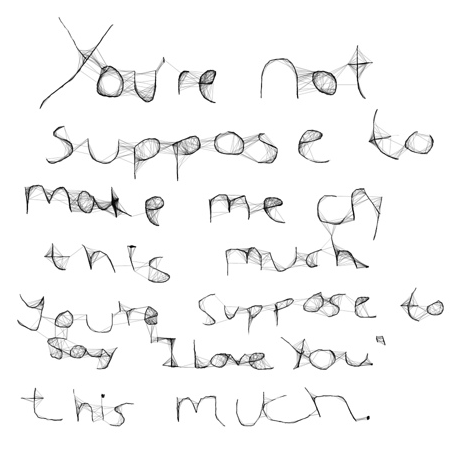 You're not
suppose to
make me cry
this much
your suppose to
say "I love you"
this much.